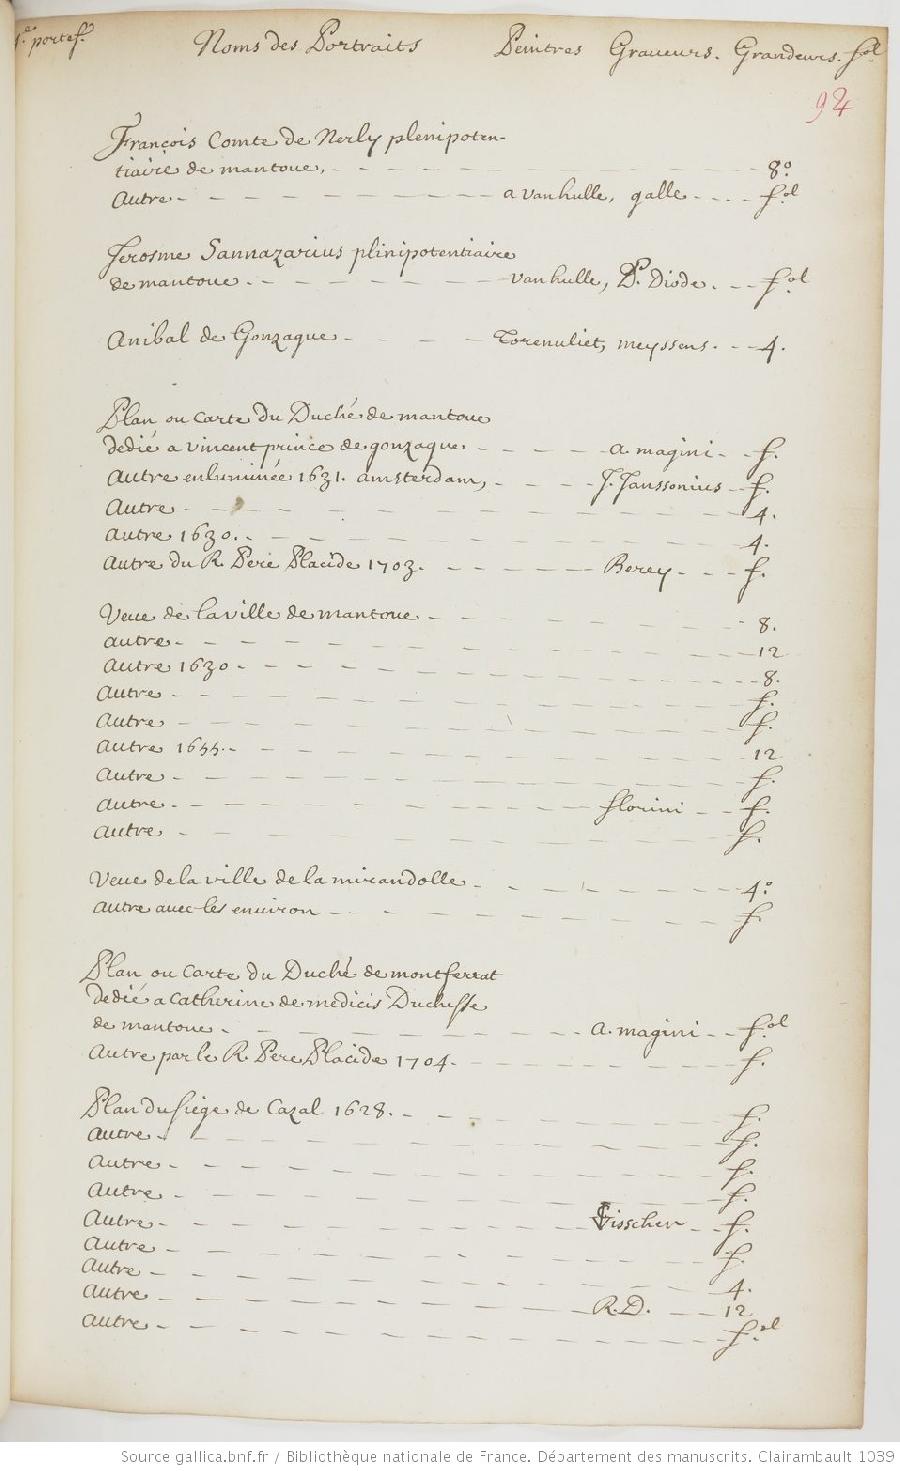 1.e portef. Noms des Portraits Peintres Graueurs. Grandeurs. fol
94
François Comte de Nerly plenipoten-
tiaire de mantoue. 8.o
Autre a vanhulle, galle f.ol
Jerosme Sannazarius plinipotentiaire
de mantoue. vanhulle, P. Diode. f.ol
Anibal de Gonzague Torenuliet, meyssens. 4.
Plan ou Carte du Duché de mantoue
dedié a vincent prince de gonzague. a. magini f.
Autre enluminée 1631. amsterdam, J. Janssonius f.
Autre 4.
Autre 1630. 4.
Autre du R. Pere Placide 1703. Berey f.
Veue de la ville de mantoue 8.
autre 12
Autre 1630 8.
Autre f.
Autre f.
Autre 1655. 12
Autre f.
Autre florini f.
Autre f.
Veue de la ville de la mirandolle 4.o
Autre auec les enuiron f.
Plan ou Carte du Duché de montferrat
dedié a Catherine de medicis Duchesse
de mantoue a. magini f.ol
Autre par le R. Pere Placide 1704. f.
Plan du siege de Cazal 1628. f.
Autre f.
Autre f.
Autre f.
Autre Visscher f.
Autre f.
Autre 4.
Autre R. D. 12
Autre f.ol
Source gallica.bnf.fr / Bibliothèque nationale de France. Département des manuscrits. Clairambault 1039